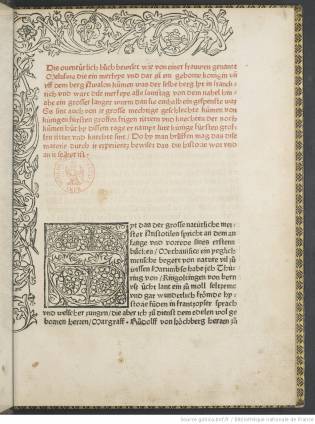 Dis ouentürlich bůch bewiset wie von einer frauwen genantt
Melusina die ein merfeye vnd dar zů ein geborne königin vñ
vß dem berg Awalon kůmen was der selbe berg lyt in franck
rich vnd ward dise merfeye alle samstag von dem nabel hin
abe ein grosser langer wurm dan sie ein halb ein gespenste was
Es sint auch von ir grosse mechtige geschlechte kůmen von
künigen fürsten groffen frigen rittern vnd knechten der noch
kůmen
grosse fürsten groffen
ritter vnd knechte sint Do by man brüffen mag das dise
materie durch ir
an ir selber ist
SYt das der grosse natürliche mei
ster Aristotiles spricht an dem an
fange vnd vorrede sines ersten
bůches Methaphisice ein yeglich
mensche begert von nature vil zů
wissen Harumbe habe ich Thü
ring von Ringoltingen von bern
vß ücht lant ein zů moll seltzene
vnd gar wunderlich frömde hy
stoae fůnden in frantzoser sprach
vnd welscher zungen / die aber ich zů dienst dem edelen wol ge
bornen herren / Margraff Růdolff von höchberg herren zů
Source gallica.bnf.fr / Bibliothèque nationale de France